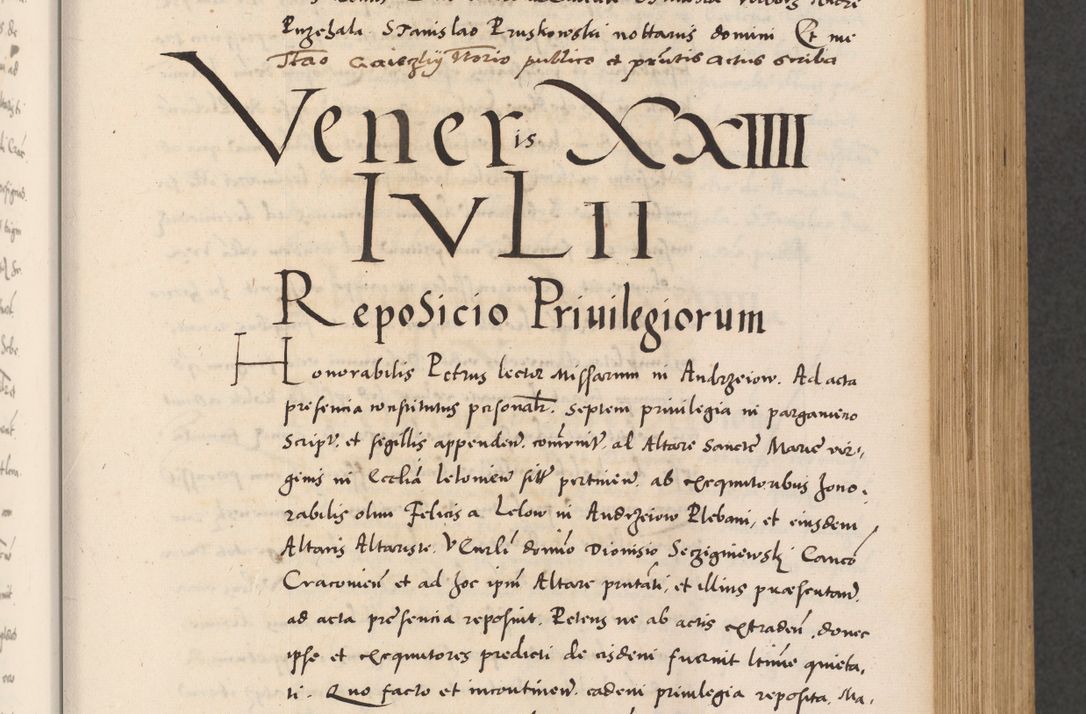 Przeħala Stanislao Pruskowski nottariis domini Et me
Ittão Gaiszlÿ Ttorio publico et pñtis actus scriba
Veneris XXIIII
IVLII
Reposicio Priuilegiorum
Honorabilis Petrus lector Missarum in Andrzeiow. Ad acta
presencia constitutus personalr. septem priuilegia in pargameno
script. et sigillis appenden. comūnit. ad Altare Sancte Marie vir,
ginis in Ecclīa lelowien sitē pertinen. ab exequutoribus hono,
rabilis olim Felicis a Lelow in Andrzeiow Plebani, et eiusdem
Altaris Altariste. Vēnrlī domīo Dionisio Secziginiewski Canco
Cracouien et ad hoc ipm Altare pntāti, et illius præsentand.
ad acta presencia reposuit. Petens ne ab actis extraden, donec
ipse et exequutores predicti de eisdem fuerint ltīme quieta,
ti. Quo facto et incontinen. eadem priuilegia reposita. Ma,